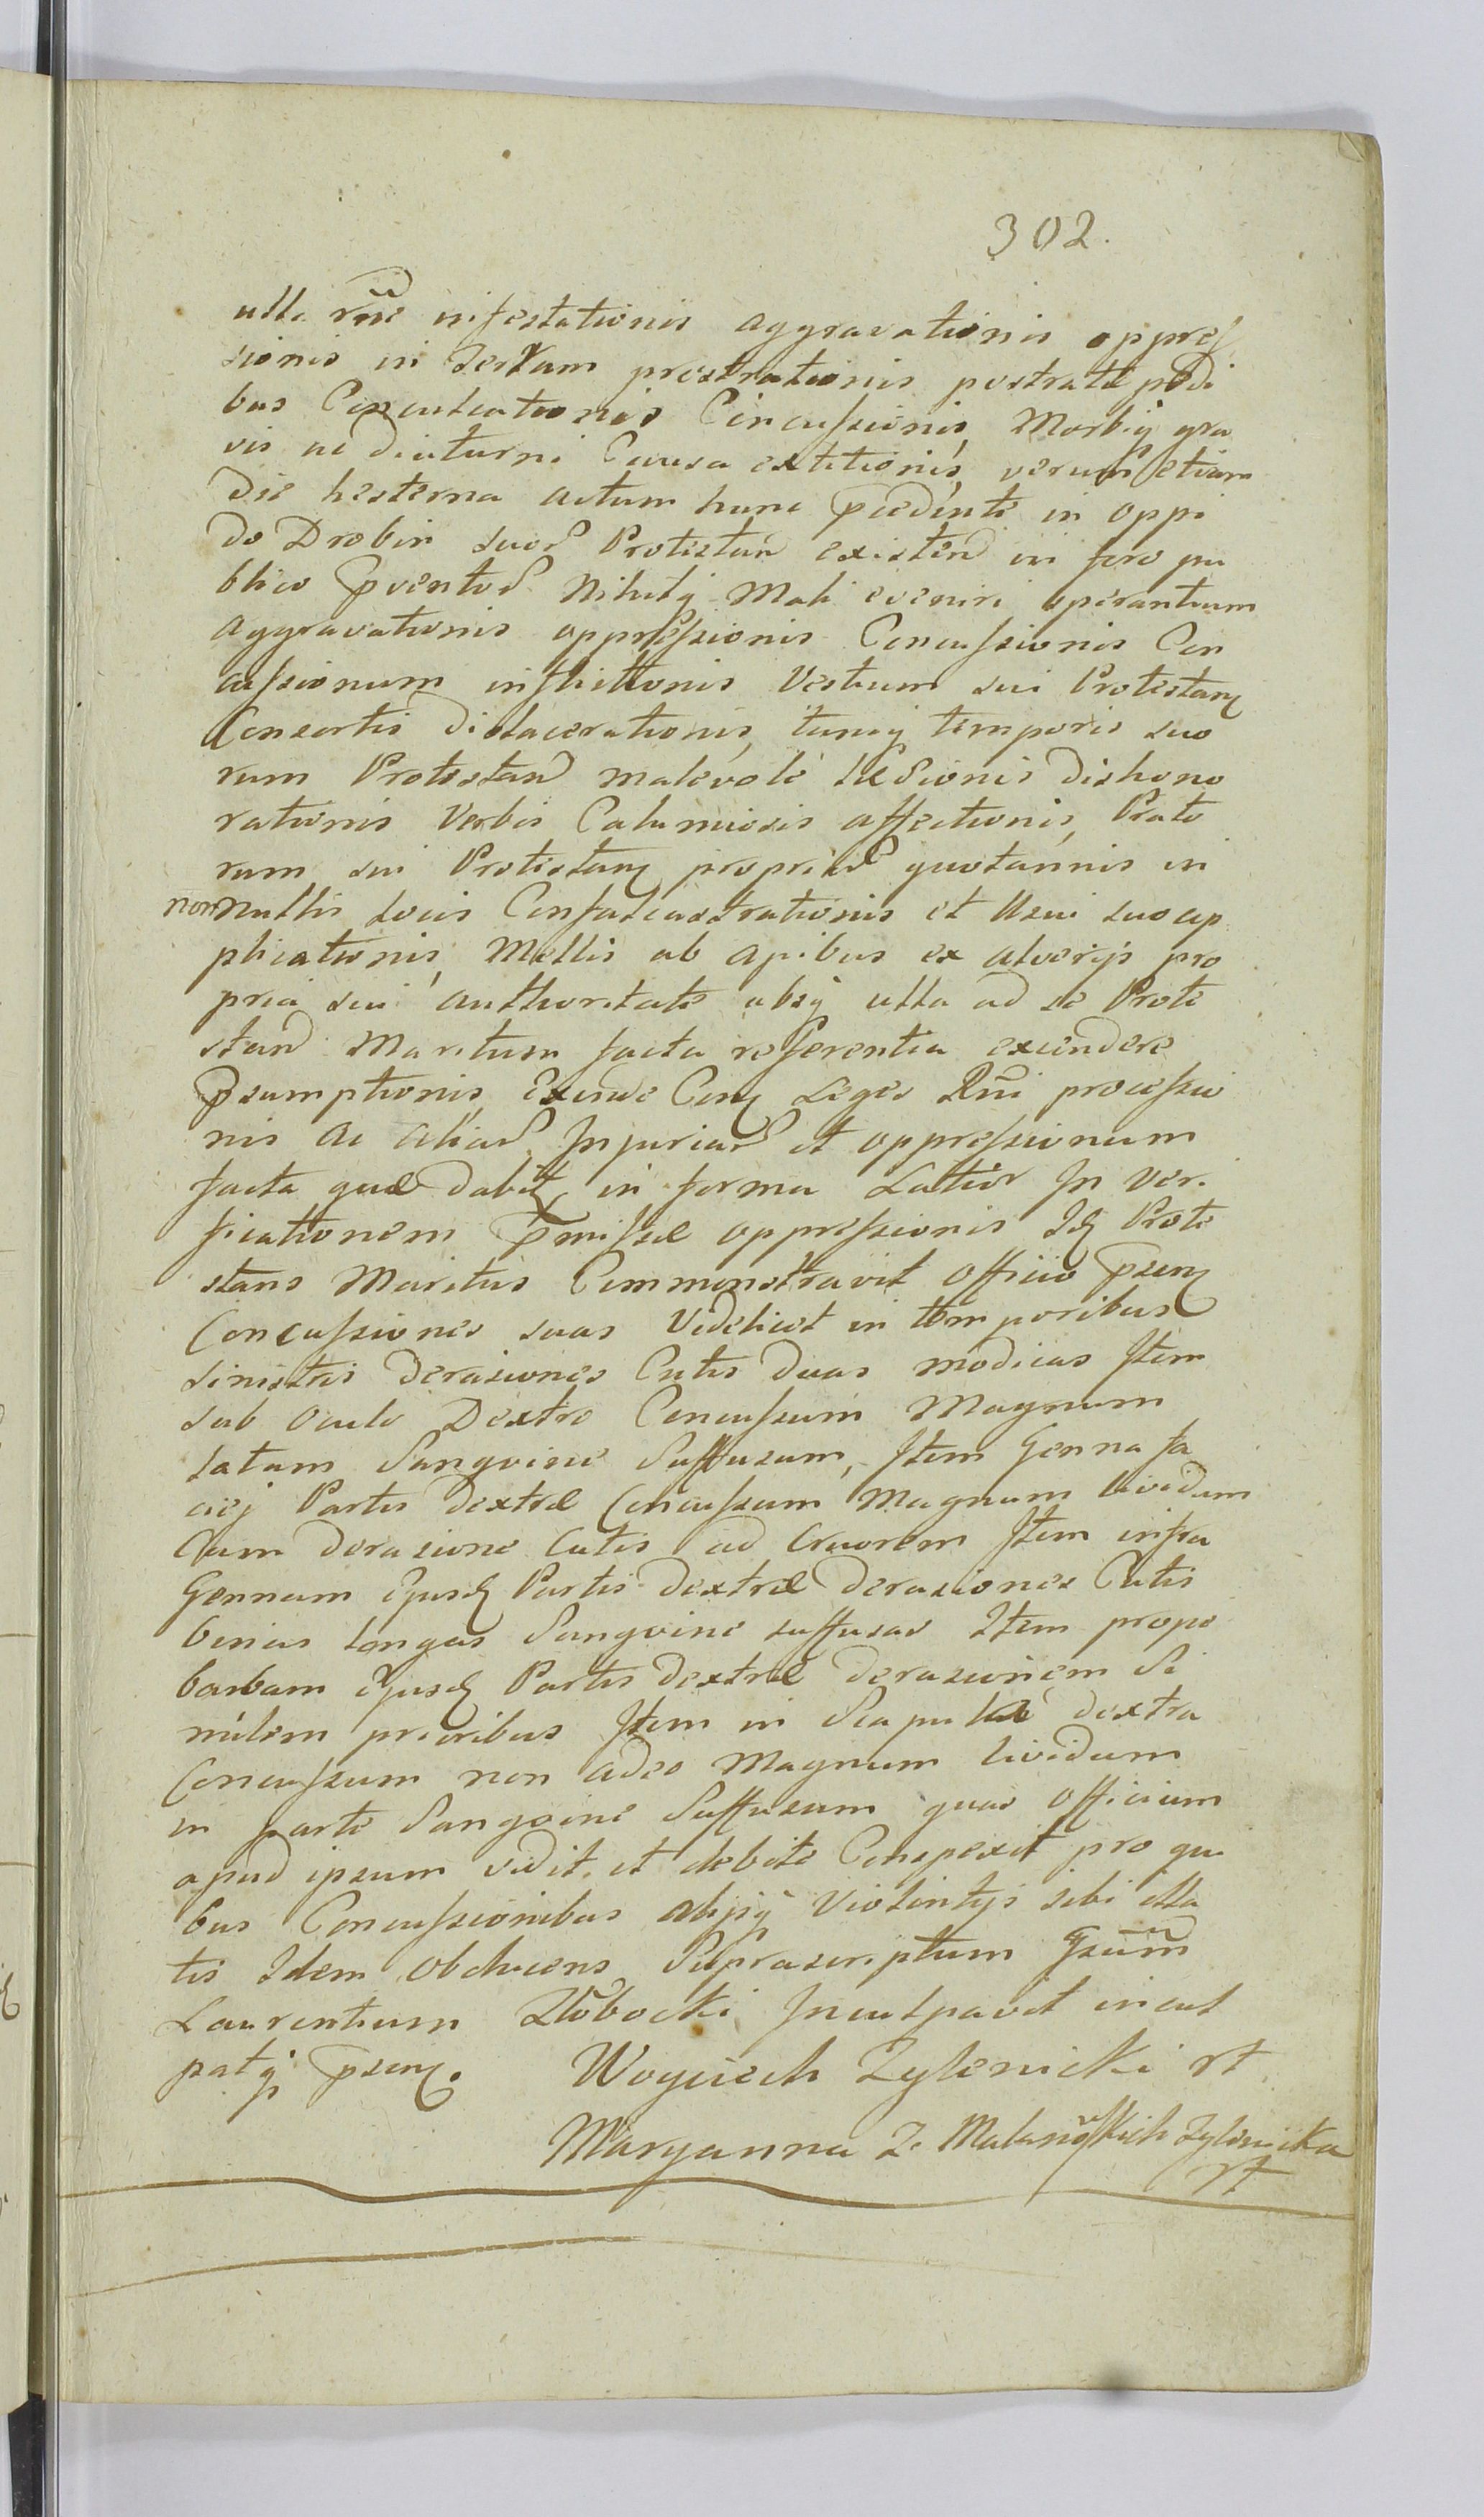 302.
ulla rñe infestationis aggravationis oppres
sionis in terram prostrationis postrate pedi
bus Conculcationis Concussionis, Morbiq gra
vis ac diuturni Causa extitionis, verum etiam
die hesterna actum hunc pcedente in oppi
do Drobin suor Protestan existen in foro pu
blico pventor Nihilq Mali eveniri sperantium
aggravationis oppressionis Concussionis Con
cussionum inflictionis Vestium sui Protestan
Consortis dilacerationis, tumq temporis suo
rum Protestan malevole læsionis dishono
rationis Verbis Calumniosis affectionis, Prato
rum sui Protestan propriar quotannis in
nonnullis Locis Confalcastrationis et Usui suo ap
plicationis, Mellis ab apibus ex alverijs pro
pria sui authoritate absq ulla ad se Prote
stan Maritum facta referentia excindere
psumptionis, Exinde Con Leges Rñi processio
nis ac aliar Injuriar et oppressionum
facta quæ dabit in forma Latior In Veri
ficationem pmissæ oppressionis Id Prote
stans Maritus Commonstravit officio psen
Concussiones suas Videlicet in temporibus
sinistris derasiones Cutis duas modicas Item
sub oculo Dextro Concussum Magnum
Latum Sangvine Suffusum, Item Genna fa
ciej Partis dextræ Concussum Magnum lividum
Cum derasione Cutis ad Cruorem Item infra
Gennam Ejusd Partis dextræ derasiones Cutis
binas longas Sangvine suffusas Item prope
barbam Ejusd Partis dextræ derasionem Si
milem prioribus Item in Scapula dextra
Concussum non adeo Magnum lividum
in parte Sangvine Suffusum quas Officium
apud ipsum vidit, et debite Conspexit pro qui
bus Concussionibus alijsq Violentijs sibi illa
tis Idem obducens Suprascriptum Gsum
Laurentium Złobocki Inculpavit incul
patq psen. Woyciech Zylenicki rt
Maryanna Z. Malanoskich Zylinicka
rt